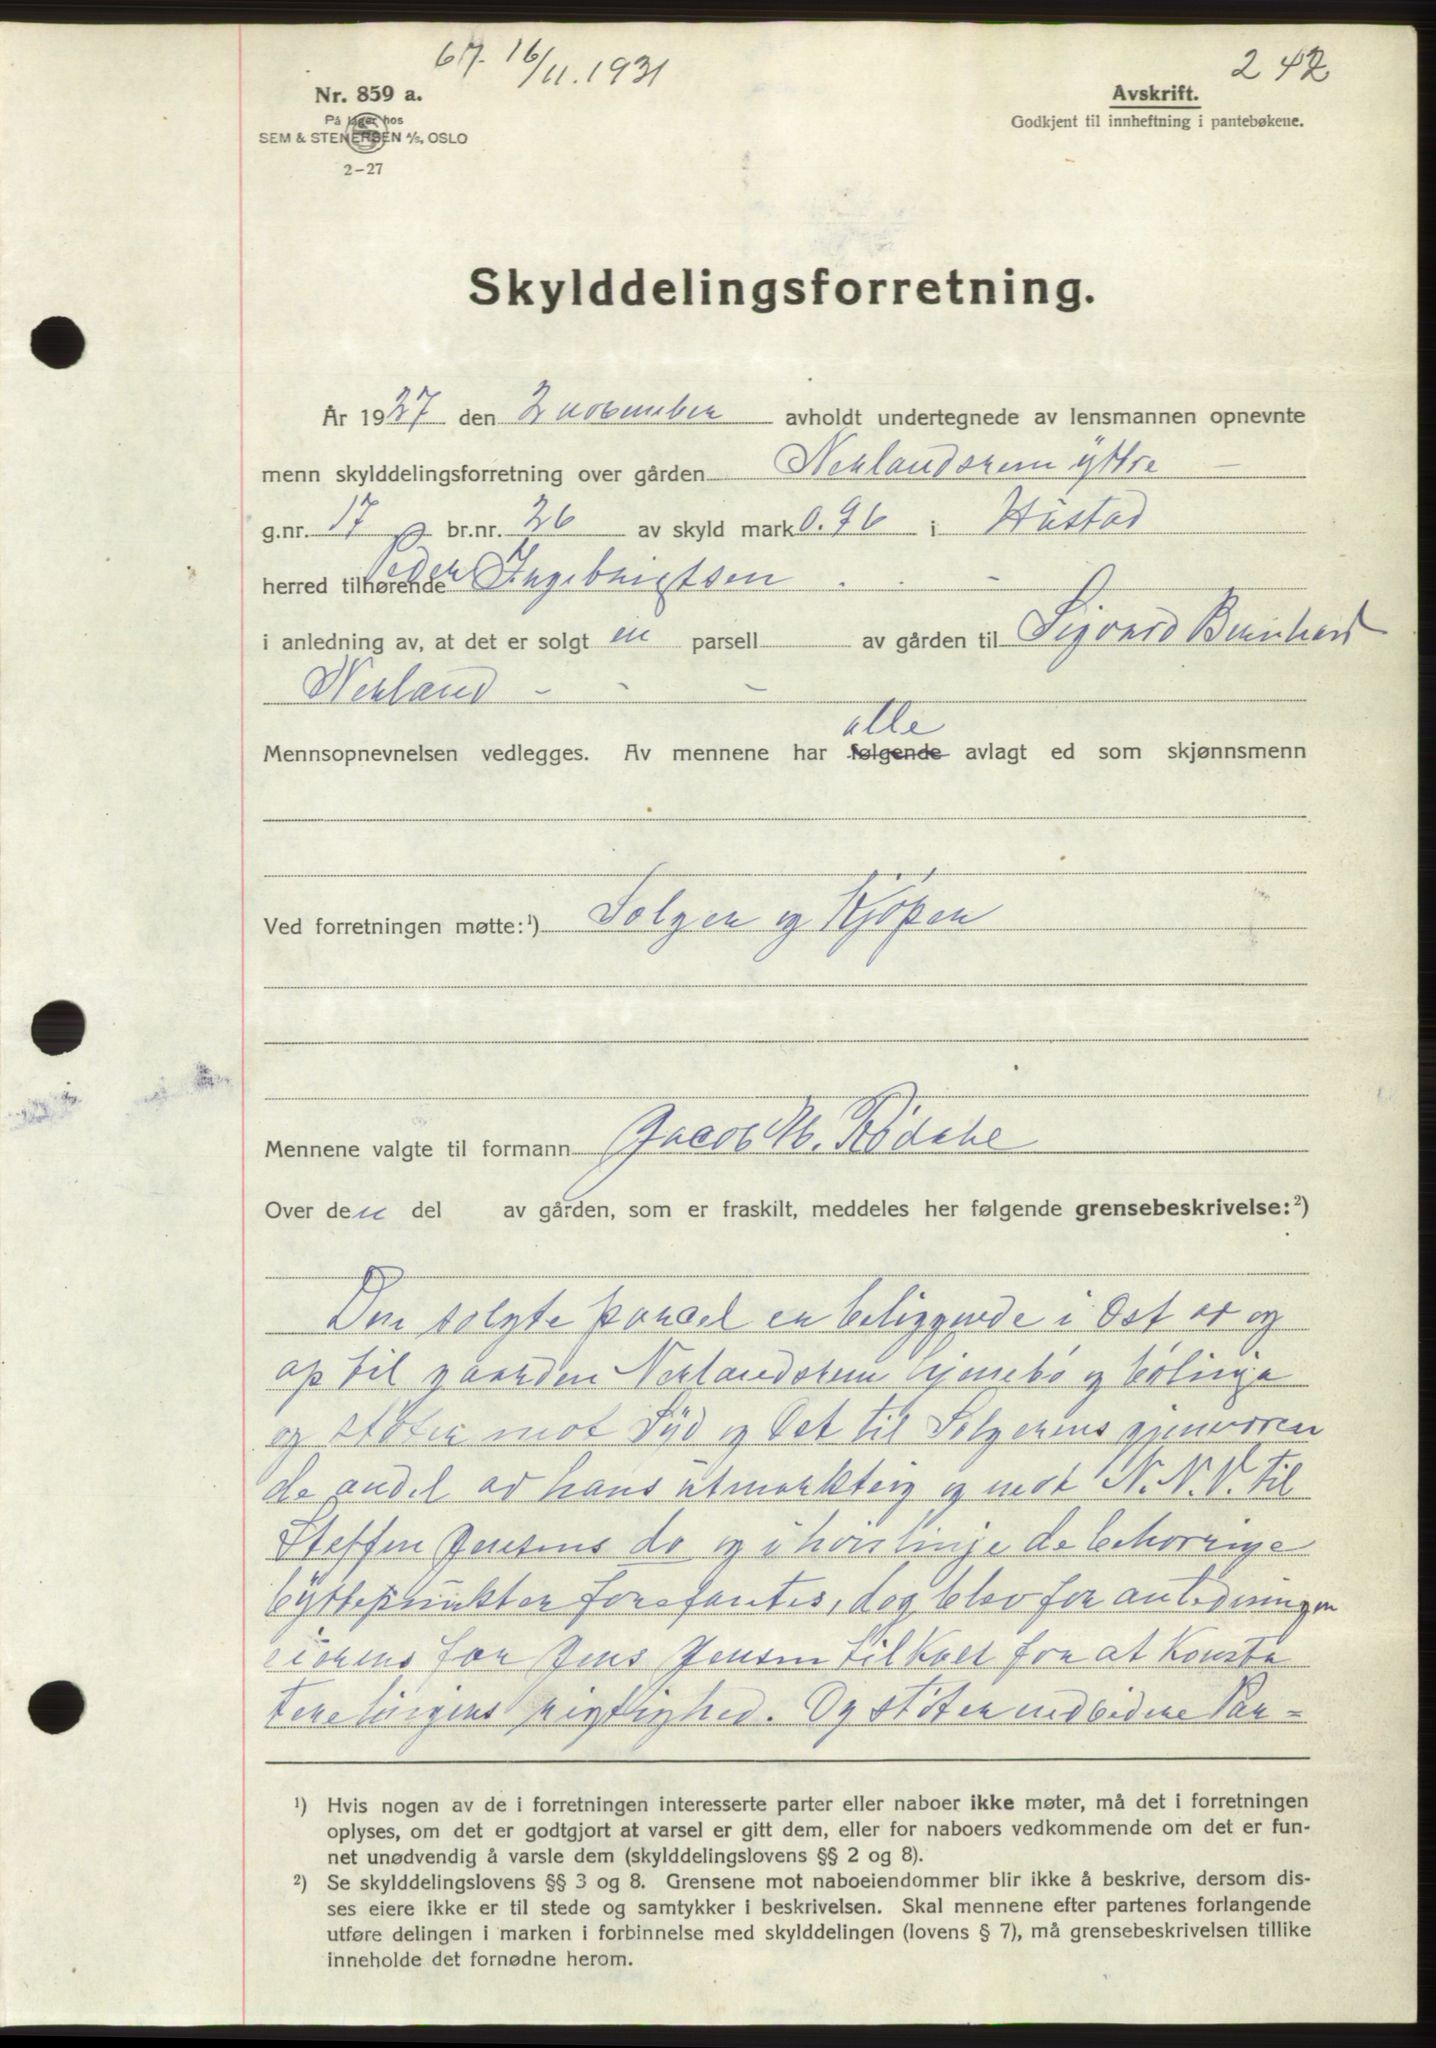 67. 16/11. 1931
242
Nr. 859 a.
På lager hos
SEM & STENERSEN A/S, OSLO
2-27
Avskrift.
Godkjent til innheftning i pantebøkene.
Skylddelingsforretning.
År 1927 den 2 november avholdt undertegnede av lensmannen opnevnte
menn skylddelingsforretning over gården Nerlandsrem yttre
g.nr. 17 br.nr. 26 av skyld mark 0.96 i Hustad
herred tilhørende Peder Ingebrigtsen
i anledning av, at det er solgt en parsell av gården til Sigvard Bernhard
Nerland
alle
Mennsopnevnelsen vedlegges. Av mennene har følgende avlagt ed som skjønnsmenn
Ved forretningen møtte:¹) Selger og Kjøper
Mennene valgte til formann Jacob M. Rødahl
Over den del av gården, som er fraskilt, meddeles her følgende grensebeskrivelse:²)
Den solgte parcel er beliggende i Øst av og
op til gaarden Nerlandsrem hjemebø og bølinja
og støter mot Syd og Øst til Selgerens gjenværen
de andel av hans utmarkteig og mot N.N.V. til
Steffen Jensens do og i hvis linje de behørige
byttepunkter forefantes, dog blev for anledningen
eieren for Jens Jensen tilkalt for at Konsta
tere linjens rigtighed. Og støter nedbidere Par=
¹) Hvis nogen av de i forretningen interesserte parter eller naboer ikke møter, må det i forretningen
oplyses, om det er godtgjort at varsel er gitt dem, eller for naboers vedkommende om det er fun-
net unødvendig å varsle dem (skylddelingslovens §§ 2 og 8).
²) Se skylddelingslovens §§ 3 og 8. Grensene mot naboeiendommer blir ikke å beskrive, dersom dis-
ses eiere ikke er til stede og samtykker i beskrivelsen. Skal mennene efter partenes forlangende
utføre delingen i marken i forbinnelse med skylddelingen (lovens § 7), må grensebeskrivelsen tillike
inneholde det fornødne herom.